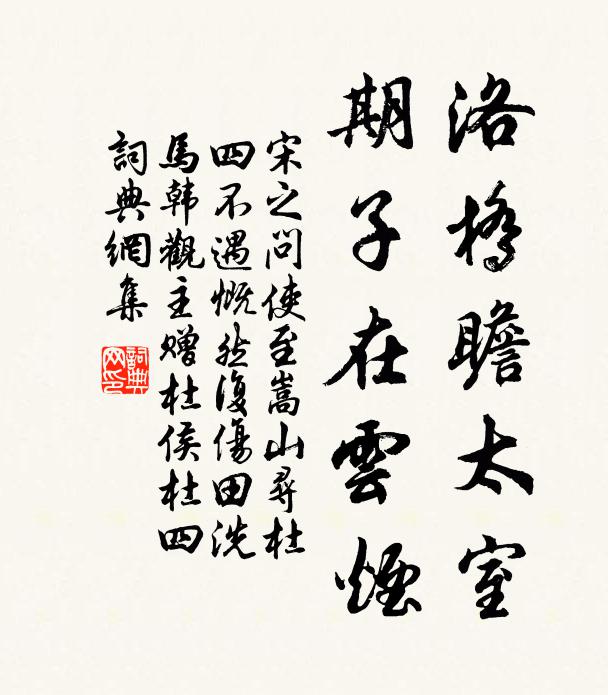 洛橋瞻太室
期子在雲煙
宋之問使至嵩山尋杜
四不遇慨然復傷田洗
馬韓觀主贈杜侯杜四
詞典網集
詞典
网印